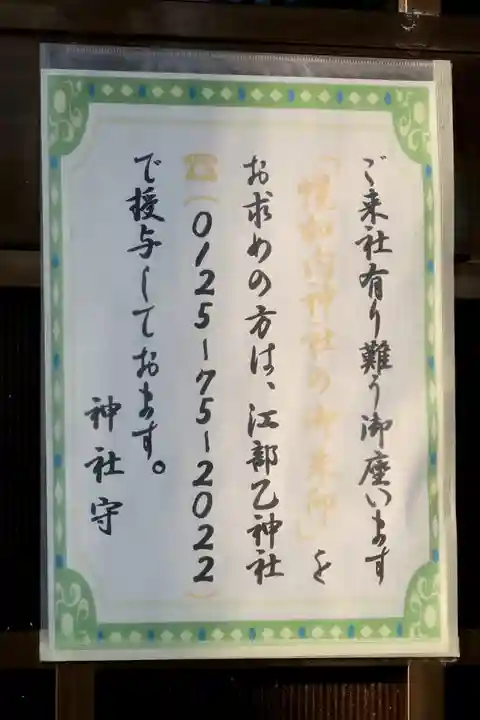 ご来社有り難う御座います
「幌加内神社の御朱印」を
お求めの方は、江部乙神社
☎(0125-75-2022)
で授与しております。
神社守